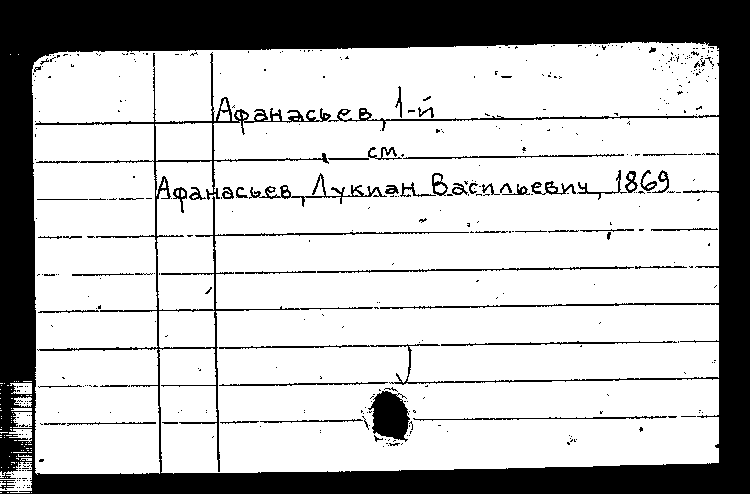 Афанасьев, 1-й
см.
Афанасьев, Лукиан Васильевич, 1869